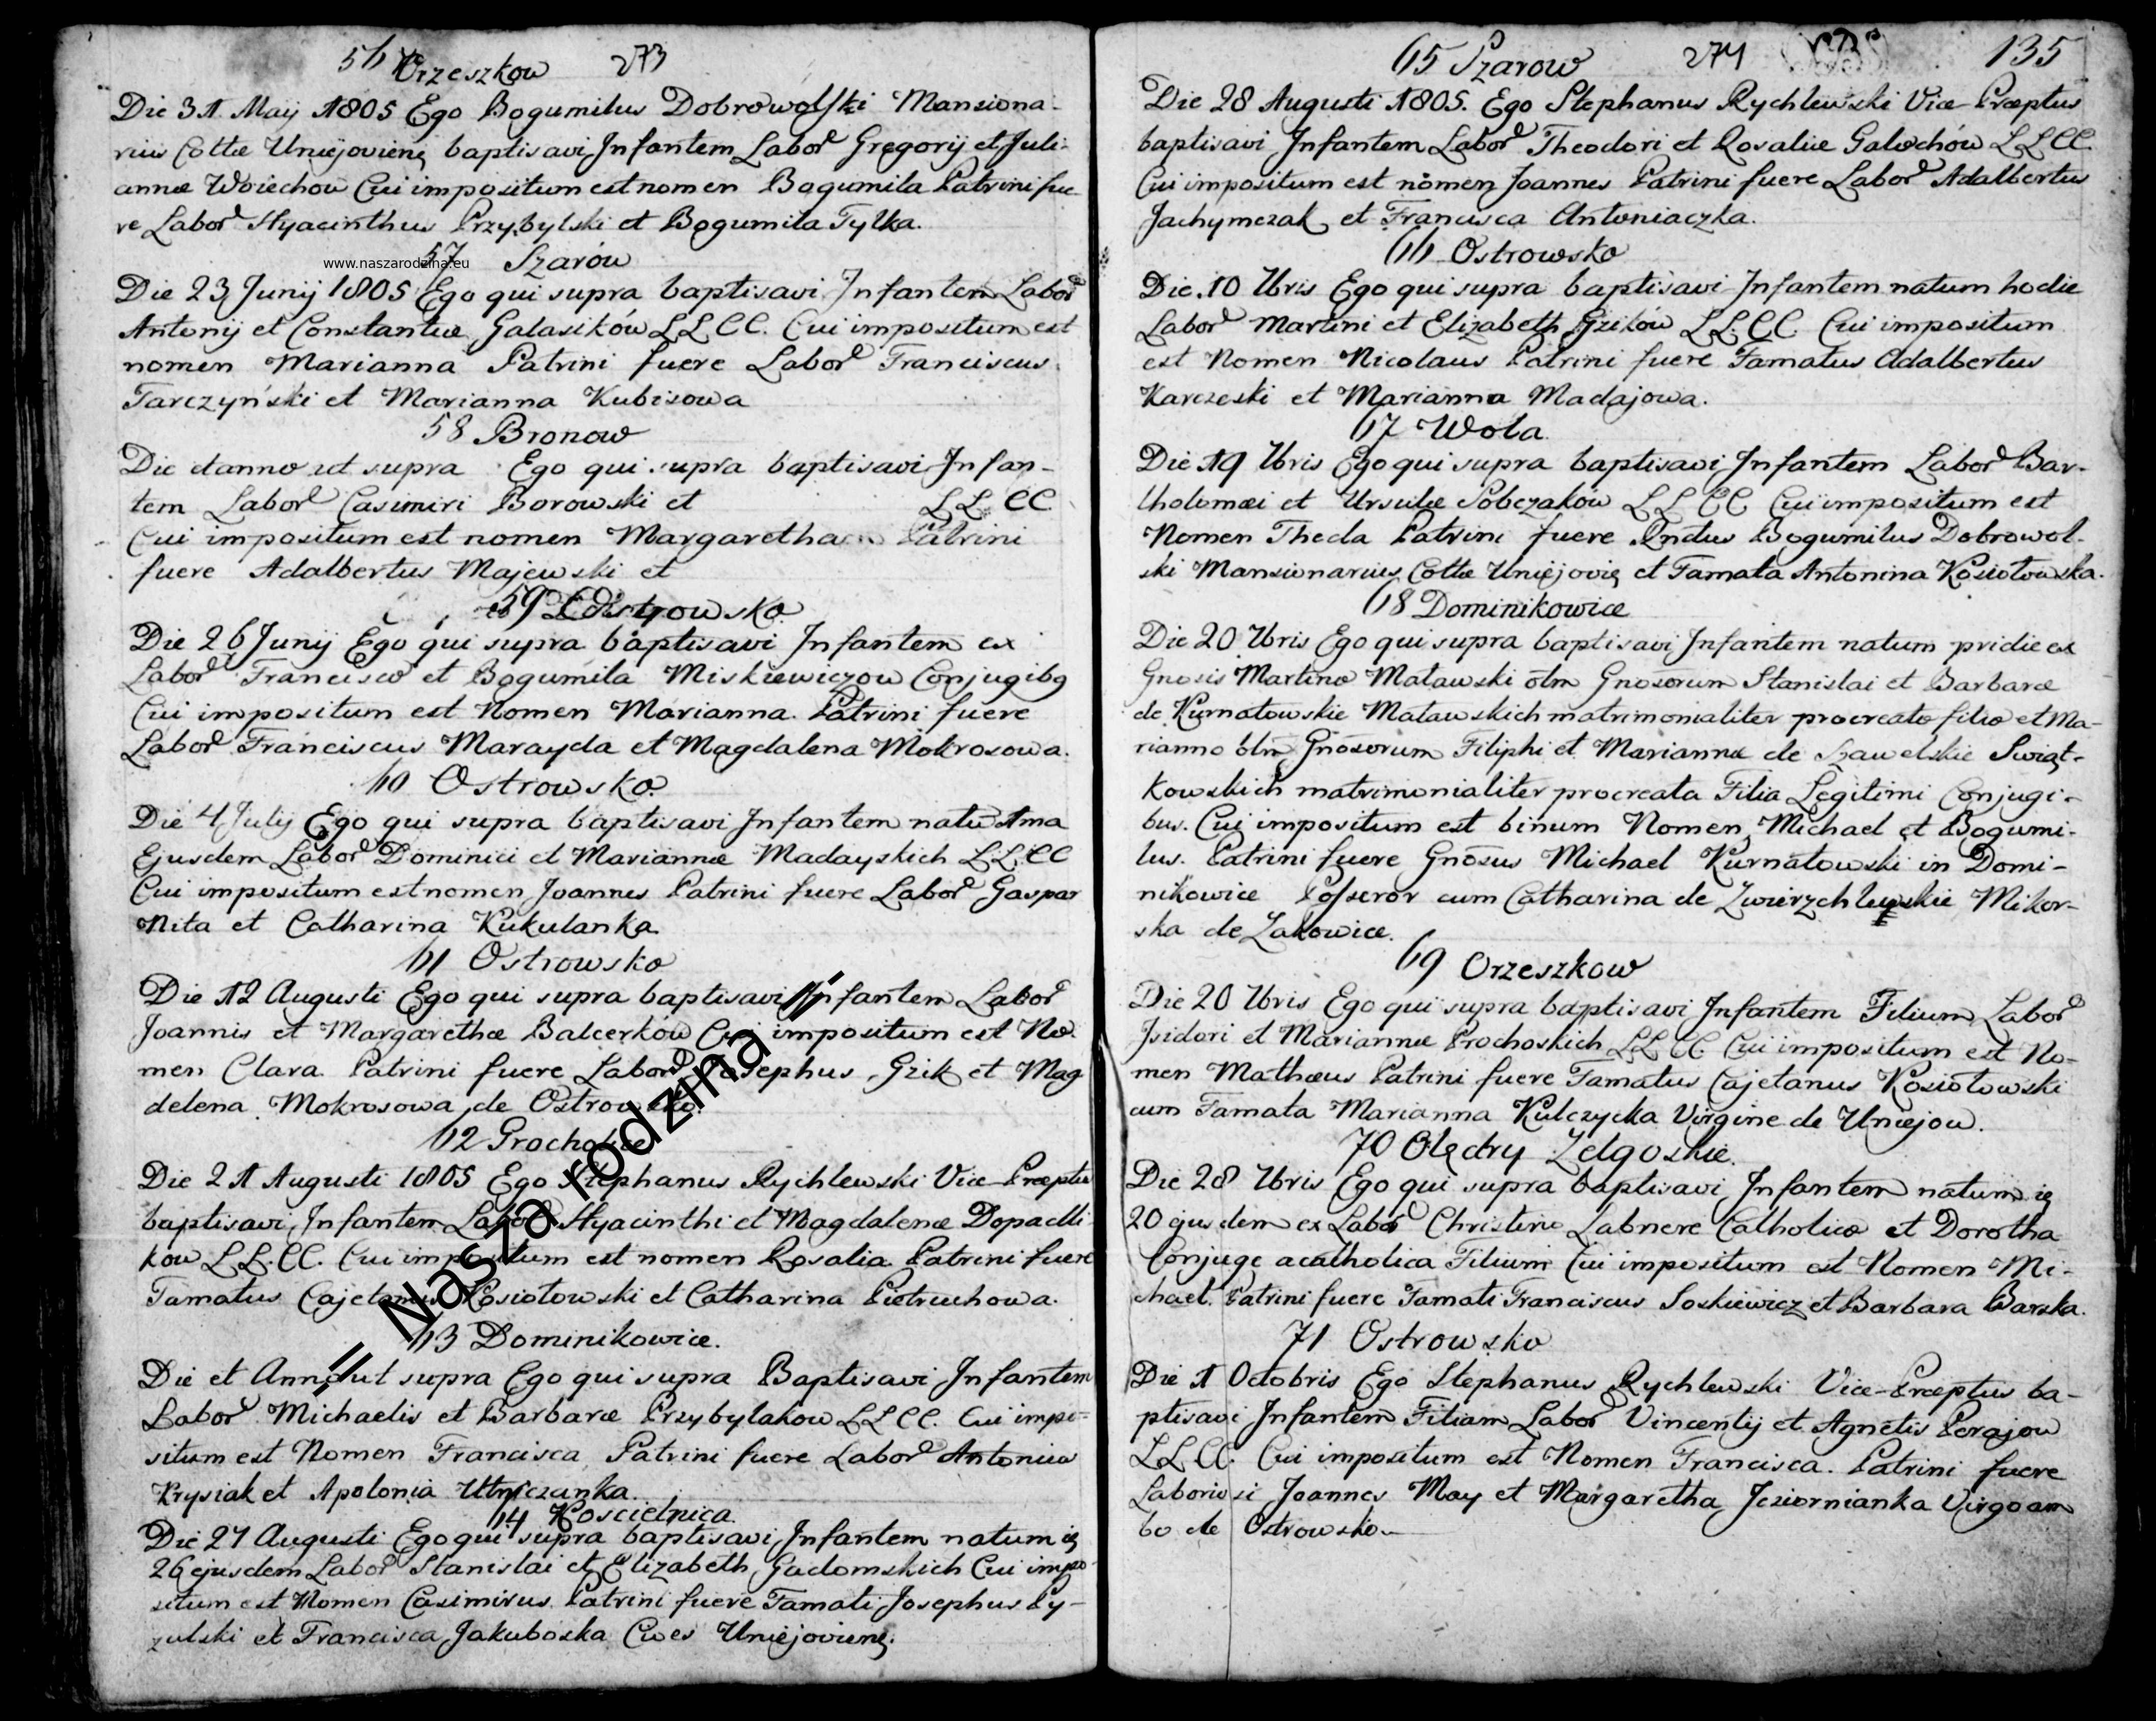 56 Orzeszkow 273
Die 31 Maij 1805 Ego Bogumilus Dobrowolski Mansiona-
rius Collæ Uniejovieng baptisavi Infantem Labor Gregorij et Juli-
annæ Woiechow Cui impositum est nomen Bogumila Patrini fue-
re Labor Hyacinthus Przybylski et Bogumila Tylka.
57 Szarów
www.naszarodzina.eu
Die 23 Junij 1805 Ego qui supra baptisavi Infantem Labor
Antonij et Constantiæ Galasików LL CC. Cui impositum est
nomen Marianna Patrini fuere Labor Franciscus
Tarczyński et Marianna Kubisowa
58 Bronow
Die et anno ut supra Ego qui supra baptisavi Infan-
tem Labor Casimiri Borowski et LL CC
Cui impositum est nomen Margaretha Patrini
fuere Adalbertus Majewski et
59 Ostrowsko
Die 26 Junij Ego qui supra baptisavi Infantem ex
Labor Francisco et Bogumila Miskiewiczow Conjugibg
Cui impositum est Nomen Marianna. Patrini fuere
Labor Franciscus Marayda et Magdalena Mokrosowa.
60 Ostrowsko
Die 4 Julij Ego qui supra baptisavi Infantem natū 1ma
Ejusdem Labor Dominici et Mariannæ Madayskich LL CC
Cui impositum est nomen Joannes Patrini fuere Labor Gaspar
Nita et Catharina Kukulanka
61 Ostrowsko
Die 12 Augusti Ego qui supra baptisavi Infantem Labor
Joannis et Margarethæ Balcerków Cui impositum est No-
men Clara Patrini fuere Labor Josephus Gzik et Mag
delena Mokrosowa de Ostrowsko
62 Grocholice
Die 21 Augusti 1805 Ego Stephanus Rychlewski Vice-Præptus
baptisavi Infantem Labor Hyacinthi et Magdalenæ Dopadli-
kow LL.CC. Cui impositum est nomen Rosalia Patrini fuere
Famatus Cajetanus Kosiotowski et Catharina Pietruchowa.
63 Dominikowice.
Die et Anno ut supra Ego qui supra Baptisavi Infantem
Labor Michaelis et Barbaræ Przybylakow LL CC. Cui impo-
situm est Nomen Francisca Patrini fuere Labor Antonius
Krysiak et Apolonia
64 Koscielnica
Die 27 Augusti Ego qui supra baptisavi Infantem natum
26 ejusdem Labor Stanislai et Elizabeth Gadomskich Cui impo-
situm est Nomen Casimirus Patrini fuere Famati Josephus Py-
zulski et Francisca Jakuboska Cives Uniejovieng.
= Nasza rodzina =
65 Szarow 274 135
Die 28 Augusti 1805. Ego Stephanus Rychlewski Vice Præptus
baptisavi Infantem Labor Theodori et Rosaliæ Galochów LL CC.
Cui impositum est nomen Joannes Patrini fuere Labor Adalbertus
Jachymczak et Francisca Antoniaczka.
66 Ostrowsko
Die 10 7bris Ego qui supra baptisavi Infantem natum hodie
Labor Martini et Elizabeth Gzików LL.CC. Cui impositum
est Nomen Nicolaus Patrini fuere Famatus Adalbertus
Karczeski et Marianna Madajowa.
67 Wola
Die 19 7bris Ego qui supra baptisavi Infantem Labor Bar-
tholomæi et Ursulæ Sobczaków LL CC Cui impositum est
Nomen Thecla Patrini fuere Rndus Bogumilus Dobrowol-
ski Mansionarius Collæ Uniejovig et Famata Antonina Kosiotowska.
68 Dominikowice
Die 20 7bris Ego qui supra baptisavi Infantem natum pridie ex
Gnosis Martino Matawski olm Gnosorum Stanislai et Barbaræ
de Kurnatowskie Matawskich matrimonialiter procreato filio et Ma-
rianno olm Gnosorum Filiphi et Mariannæ de Szawelskie Swiąt-
kowskich matrimonialiter procreata Filia Legitimi Conjugi-
bus. Cui impositum est binum Nomen Michael et Bogumi-
lus. Patrini fuere Gnosus Michael Kurnatowski in Domi-
nikowice Possesor cum Catharina de Zwierzchleyskie Mikor-
ska de Zakowice.
69 Orzeszkow
Die 20 7bris Ego qui supra baptisavi Infantem Filium Labor
Isidori et Mariannæ Prochoskich LL CC. Cui impositum est No-
men Mathæus Patrini fuere Famatus Cajetanus Kosiotowski
cum Famata Marianna Kulczycka Virgine de Uniejow.
70 Olędry Zelgoskie.
Die 28 7bris Ego qui supra baptisavi Infantem natum
20 ejusdem ex Labor Christino Labnere Catholico et Dorotha
Conjuge acatholica Filium Cui impositum est Nomen Mi-
chael. Patrini fuere Famati Franciscus Soskiewicz et Barbara Barska.
71 Ostrowsko
Die 1 Octobris Ego Stephanus Rychlewski Vice-Præptus ba-
ptisavi Infantem Filiam Labor Vincentij et Agnetis Perajow
LL CC. Cui impositum est Nomen Francisca. Patrini fuere
Laboriosi Joannes May et Margaretha Jeziornianka Virgo am
bo de Ostrowsko